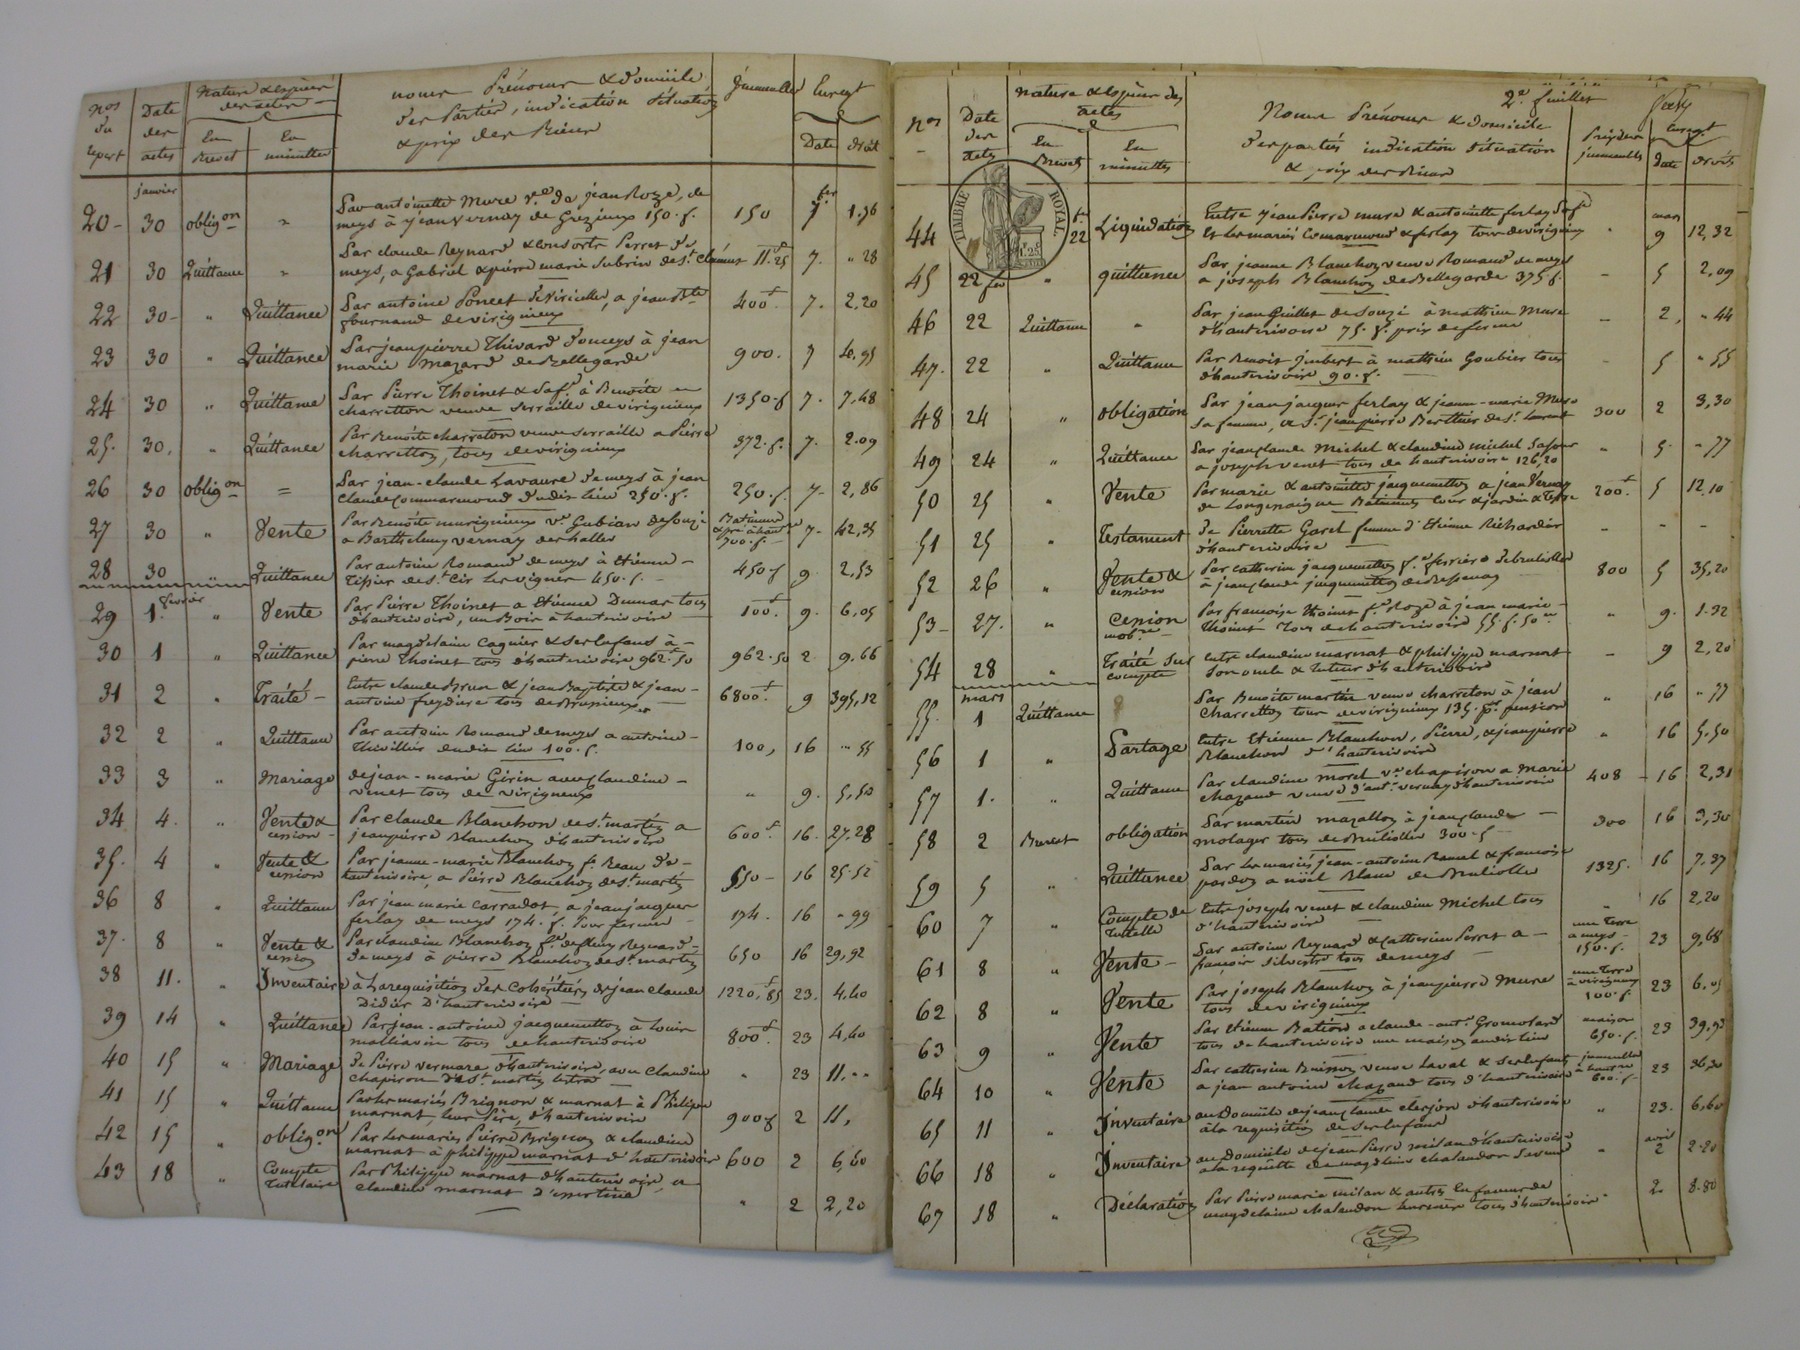 Nos du repert
Date des actes
Nature & espèces des actes
En Brevet
En minuttes
noms Prénoms & domicile
des Parties, indication situation
& prix des Biens
Immeubles
Enregt
Date droit
janvier
20 - 30 obligon " Par antoinette Mure ve de jean Roze, de
meys à jean Vernay de Grezieux 150. f. 150 7 fer 1,36
21 30 Quittance " Par claude Reynard & consorts Perret de
meys, a Gabriel & pierre marie Subrin de St. clément 11 f. 25 7. " 28
22 30 - " Quittance Par antoine Poncet de Viricelles, a jean Bte
fournand de virigneux 400 f 7. 2,20
23 30 " Quittance Par jean pierre Thivard de meys à jean
marie Mazard de Bellegarde 900. 7 4,95
24 30 " Quittance Par Pierre Thoinet & sa fe. à Benoite
charretton veuve serraille de virigneux 1350. f 7. 7,48
25. 30. " Quittance Par Benoite charreton veuve serraille a Pierre
charretton, tous de virigneux 372. f. 7. 2.09
26 30 obligon = Par jean-claude Lavaure de meys à jean
claude commarmond dudit lieu 250. f. 250. f. 7. 2,86
27 30 " Vente Par Benoite murigneux ve Gubian de Souzi
a Barthelemy vernay des halles Batiment 700. f. 7. 42,35
28 30 " Quittance Par antoine Romand de meys à Etienne
Tissier de St. Cir les vignes 450. f. 450. f 9. 2,53
fevrier
29 1. " Vente Par Pierre Thoinet a Etienne Dumas tous
d'hauterivoire, un Bois à hauterivoire 100. f 9. 6,05
30 1 " Quittance Par magdelaine Cognier & ses enfans à
pierre Thoinet tous d'hauterivoire 962. f 50 962. 50 2 9.66
31 2 " Traité - Entre claude Brun & jean Baptiste & jean -
antoine freydiere tous de Brussieux 6800. f 9 395,12
32 2 " Quittance Par antoine Romand de meys a antoine -
Thevillier dudit lieu 100. f. 100, 16 " 55
33 3 " Mariage de jean - marie Girin avec claudine -
venet tous de virigneux " 9. 5,50
34 4. " Vente & cession - Par claude Blanchon de St. martin a
jean pierre Blanchon d'hauterivoire 600. f 16. 27.28
35. 4 " Vente & cession Par jeanne - marie Blanchon fe. Beau d'
hauterivoire, a Pierre Blanchon de St. martin 550 - 16 25.52
36 8 " Quittance Par jean marie Carradot, a jean jacques
ferlay de meys 174. f. Pour ferme 174. 16 " 99
37. 8 " Vente & cession Par claudine Blanchon fe. de fleury Reynard
de meys à pierre Blanchon de St. martin 650 16 29,92
38 11. " Inventaire à La requisition des Cohéritiers de jean claude
Didier d'hauterivoire 1220. f 85 23. 4,40
39 14 " Quittance Par jean - antoine jacquemetton à Louis
mathavon tous de hauterivoire 800. f 23 4,40
40 15 " Mariage de Pierre vermare d'hauterivoire, avec Claudine
chapiron de St. martin Lestra " 23 11, " "
41 15 " Quittance Par les mariés Brignon & marnat à Philippe
marnat, leur Père, d'hauterivoire 900 f 2 11,
42 15 " obligon Par les mariés Pierre Brignon & claudine
marnat à philippe marnat d'hauterivoire 600 2 6,60
43 18 " Compte Tutelaire Par Philippe marnat d'hauterivoire, a
claudine marnat d'
" 2 2,20
2e. feuillet
Nos
Date des actes
Nature & espèce des actes
En Brevet
En minuttes
Noms Prénoms & domicile
des parties indication situation
& prix des Biens
Prix des immeubles
Enregt
date droits
TIMBRE ROYAL
1 F. 25 C
44 22 fer Liquidation Entre jean Pierre mure & antoinette ferlay sa fe
Et les mariés Commarmond & ferlay tous de virigneux " mars 9 12,32
45 22 fer " quittance Par jeanne Blanchon veuve Romand de meys
a joseph Blanchon de Bellegarde 375 f. - 5 2,09
46 22 Quittance " Par jean Guillet de Souzi à mathieu Mure
d'hauterivoire 75. f. prix de ferme - 2, " 44
47. 22 " Quittance Par Benoit Imbert à mathieu Goubier tous
d'hauterivoire 90. f. - 5 " 55
48 24 " obligation Par jean jacques ferlay & jeanne - marie Mure
sa femme, a Sr. jean pierre Berthier de St. Laurent 300 2 3,30
49 24 " Quittance Par jean claude Michel & claudine michel sa soeur
a joseph venet tous de hauterivoire 126,20 " 5. " 77
50 25 " Vente Par marie & antoinette jacquemetton a jean Vernay
de Longessaigne Batiments cour & jardin & Terre 200. f 5 12,10
51 25 " Testament de Pierrette Garel femme d'Etienne Richardier
d'hauterivoire - - -
52 26 " Vente & cession Par Catherine jacquemetton fe. ferriere de brullioles
à jean claude jacquemetton de Bessenay 800 5 35,20
53 - 27. " Cession mobre Par françoise Thoinet fe. Roze à jean marie -
Thoinet tous de hauterivoire 55. f. 50 " 9. 1.32
54 28 " Traité sur compte entre claudine marnat & philippe marnat
son oncle & tuteur d'hauterivoire - 9 2,20
mars
55. 1 Quittance Par Benoite martin veuve charreton à jean
Charretton tous de virigneux 135. f. pension " 16 " 77
56 1 " Partage Entre Etienne Blanchon, Pierre, & jean pierre
Blanchon d'hauterivoire " 16 5.50
57 1. " Quittance Par claudine morel ve. chapiron a Marie
chazaud veuve d'ant. vernay d'hauterivoire 408 - 16 2,31
58 2 Brevet obligation Par martin mazallon à jean claude -
molager tous de Brulliolles 300. f 300 16 3,30
59 5 " Quittance Par les mariés jean - antoine Ramel & françoise
pardon a nöel Blanc de Brulliolle 1325. 16 7,37
60 7 " Compte de Tutelle Entre joseph venet & claudine Michel tous
d'hauterivoire " 16 2,20
61 8 " Vente - Par antoine Reynard & Catherine Perret a -
françois silvestre tous de meys une Terre a meys 150. f. 23 9,68
62 8 " Vente Par joseph Blanchon à jean pierre Mure
tous de virigneux une Terre a virigneux 100. f. 23 6,05
63 9 " Vente Par Etienne Bation a claude - ant. Gromolard
tous de hauterivoire une maison audit lieu maison 650. f. 23 39,93
64 10 " Vente Par catherine Buisson veuve Laval & ses enfants
a jean antoine chazaud tous d'hauterivoire immeubles à hautre 600. f. 23 36,30
65 11 " Inventaire au Domicile de jean claude clerjon d'hauterivoire
à la requisition de ses enfans " 23. 6,60
66 18 " Inventaire au Domicile de jean Pierre milan d'hauterivoire
a la requête de magdelaine chalandon sa veuve " avril 2 2.20
67 18 " Déclaration Par Pierre marie milan & autres En faveur de
magdelaine chalandon leur mère tous d'hauterivoire 2 8.80